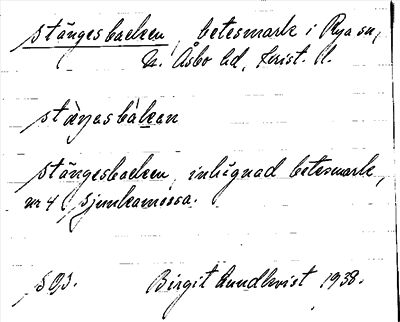 Stängesbacken, betesmark i Rya sn,
N. Åsbo hd, Krist. l.
stäŋasbàkan
Stängesbacken, inhägnad betesmark,
nr 4 Sjunkamossa.
Birgit Lundkvist 1938.